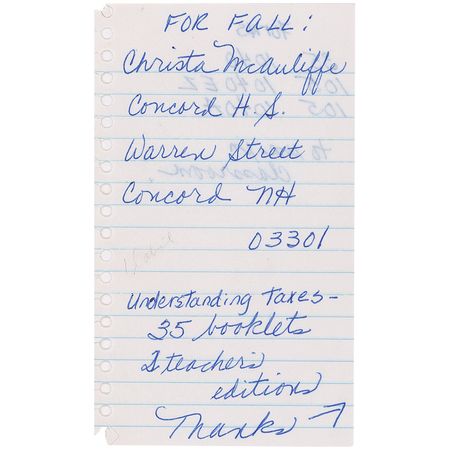 FOR FALL:
Christa McAuliffe
Concord H.S.
Warren Street
Concord NH
03301
Understanding Taxes-
35 booklets
2 teachers'
editions
Thanks →